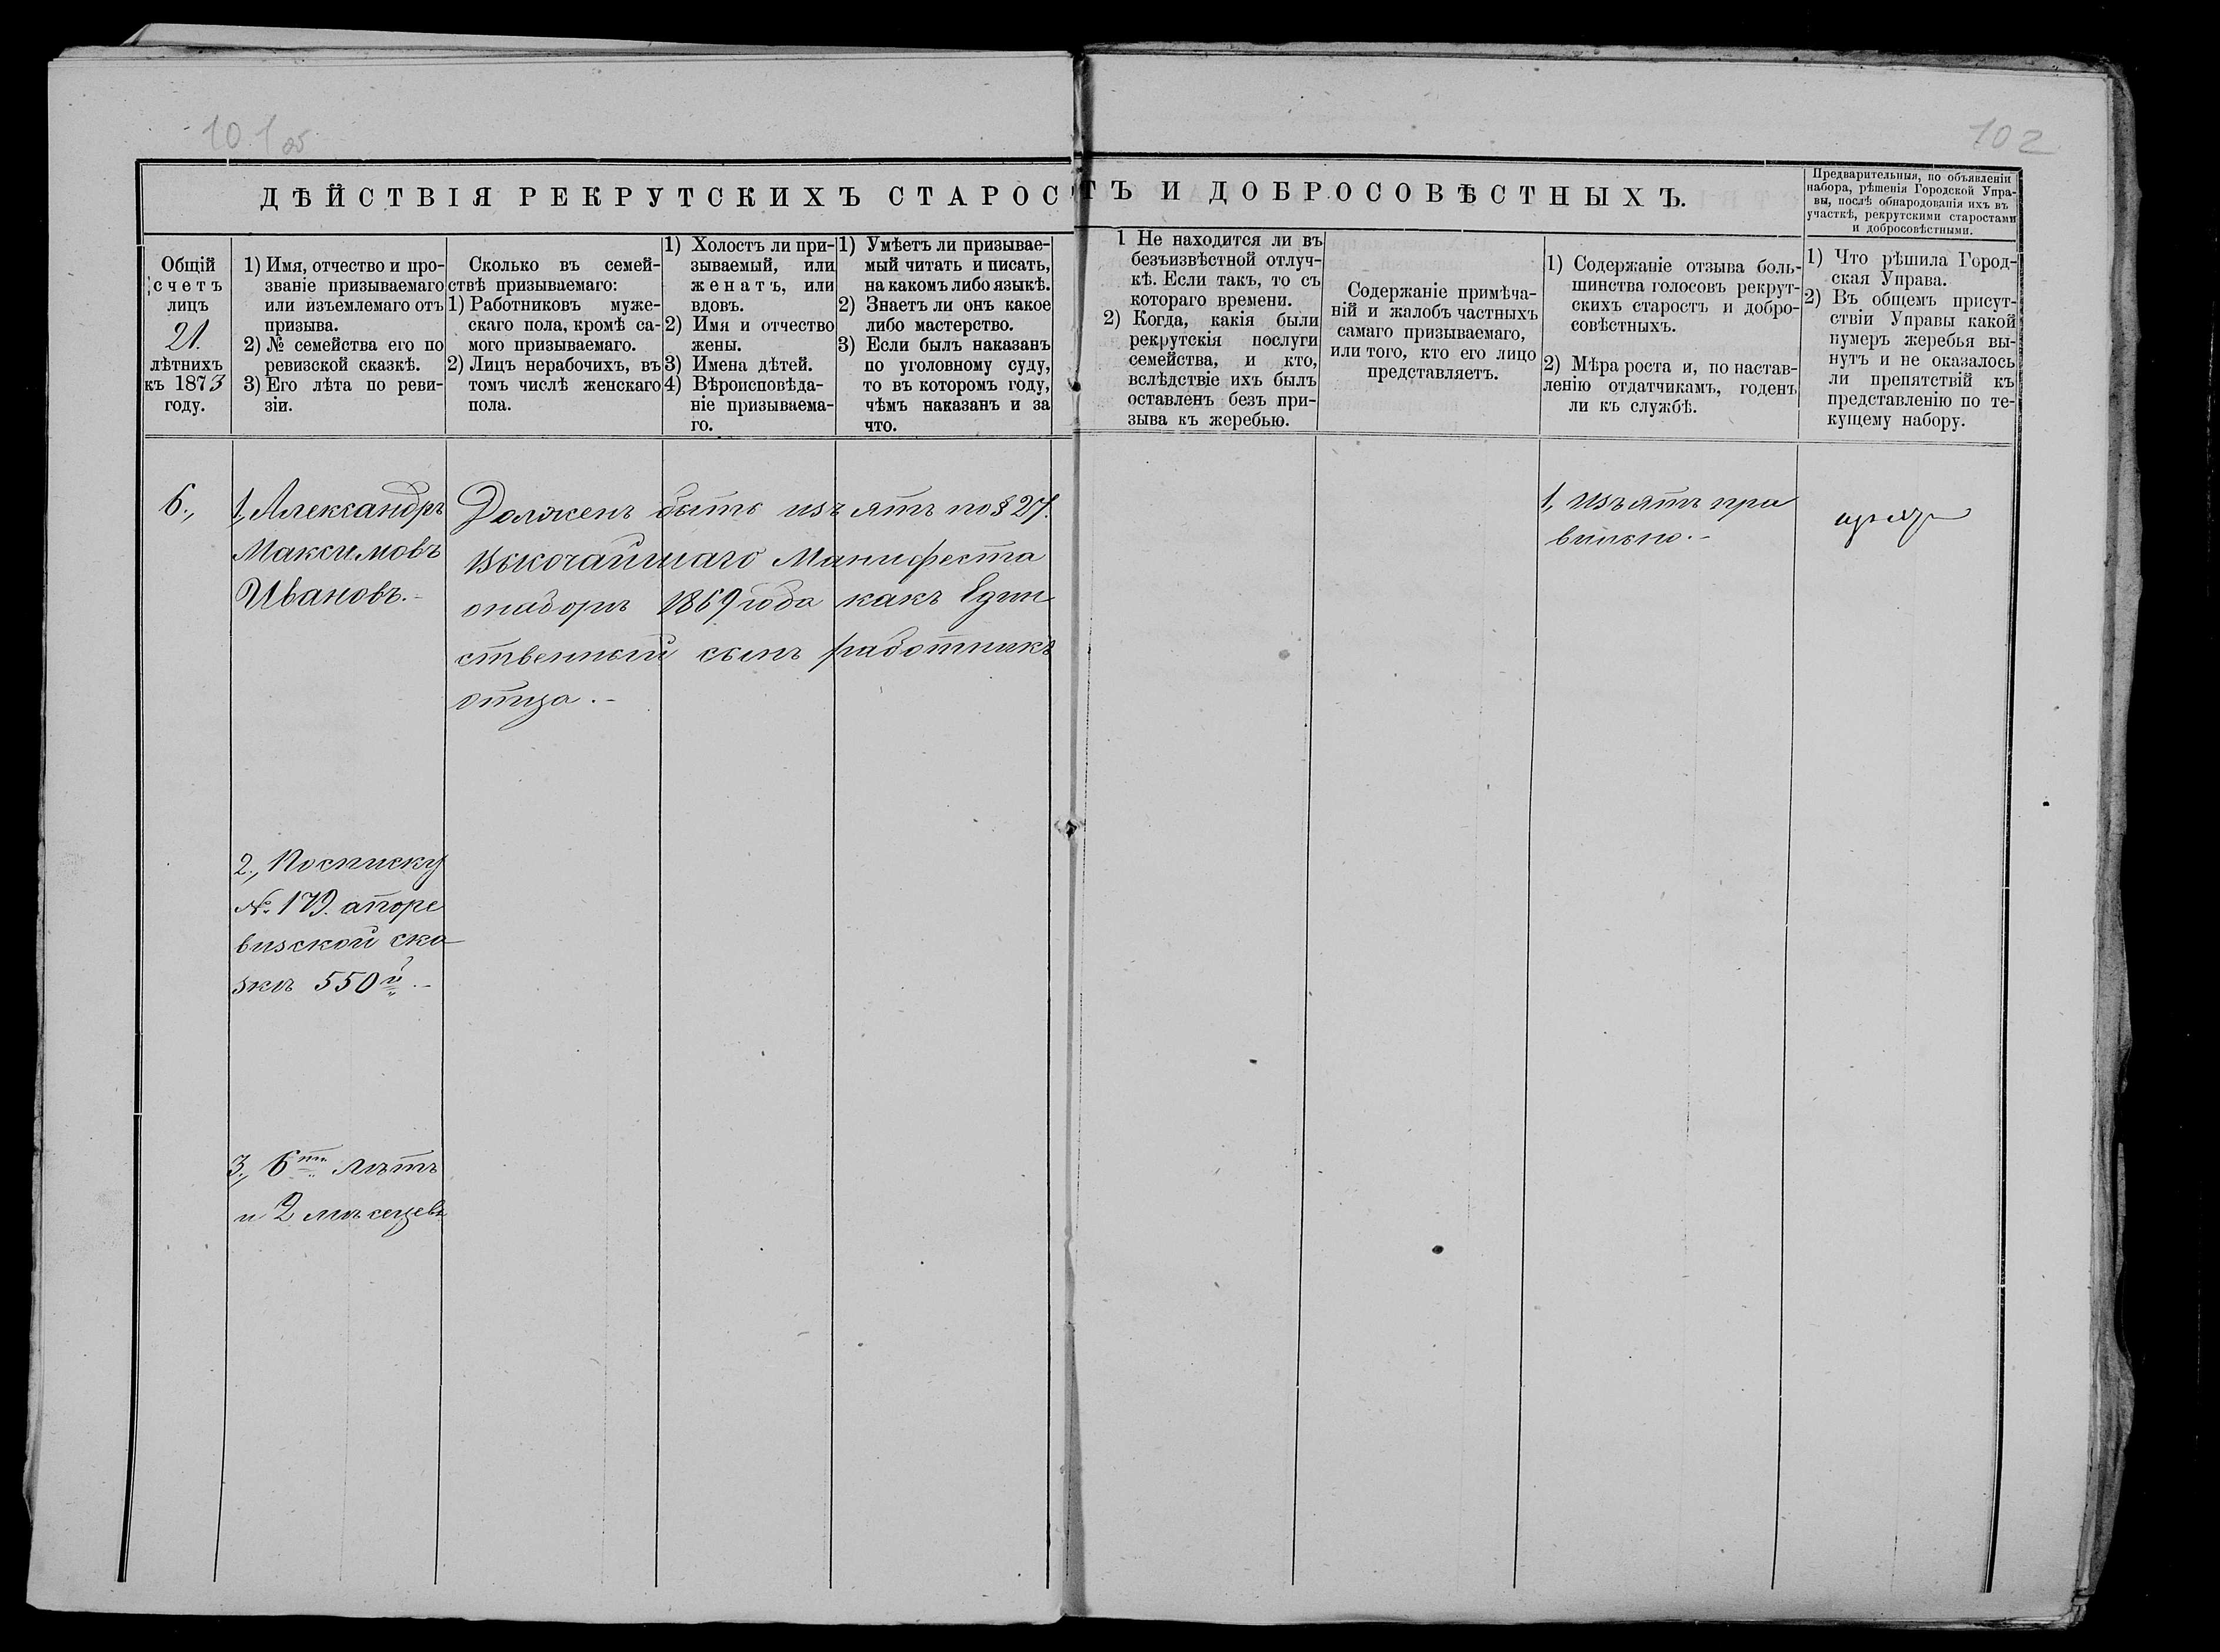 101 об
102
ДѢЙСТВІЯ РЕКРУТСКИХЪ СТАРОСТЪ И ДОБРОСОВѢСТНЫХЪ.
Предварительныя, по объявленіи
набора, рѣшенія Городской Упра-
вы, послѣ обнародованія ихъ въ
участкѣ, рекрутскими старостами
и добросовѣстными.
Общій
счетъ
лицъ
21.
лѣтнихъ
къ 1873
году.
1) Имя, отчество и про-
званіе призываемаго
или изъемлемаго отъ
призыва.
2) № семейства его по
ревизской сказкѣ.
3) Его лѣта по реви-
зіи.
Сколько въ семей-
ствѣ призываемаго:
1) Работниковъ муже-
скаго пола, кромѣ са-
мого призываемаго.
2) Лицъ нерабочихъ, въ
томъ числѣ женскаго
пола.
1) Холостъ ли при-
зываемый, или
женатъ, или
вдовъ.
2) Имя и отчество
жены.
3) Имена дѣтей.
4) Вѣроисповѣда-
ніе призываема-
го.
1) Умѣетъ ли призывае-
мый читать и писать,
на какомъ либо языкѣ.
2) Знаетъ ли онъ какое
либо мастерство.
3) Если былъ наказанъ
по уголовному суду,
то въ которомъ году,
чѣмъ наказанъ и за
что.
1 Не находится ли въ
безъизвѣстной отлуч-
кѣ. Если такъ, то съ
котораго времени.
2) Когда, какія были
рекрутскія послуги
семейства, и кто,
вслѣдствіе ихъ былъ
оставленъ безъ при-
зыва къ жеребью.
Содержаніе примѣча-
ній и жалобъ частныхъ
самаго призываемаго,
или того, кто его лицо
представляетъ.
1) Содержаніе отзыва боль-
шинства голосовъ рекрут-
скихъ старостъ и добро-
совѣстныхъ.
2) Мѣра роста и, по настав-
ленію отдатчикамъ, годенъ
ли къ службѣ.
1) Что рѣшила Город-
ская Управа.
2) Въ общемъ присут-
ствіи Управы какой
нумеръ жеребья вы-
нутъ и не оказалось
ли препятствій къ
представленію по те-
кущему набору.
6.,
1, Александръ
Максимовъ
Ивановъ.-
2., По списку
№ 179. а по ре
визской ска
зкѣ 550й.-
3., 6ти лѣтъ
и 2 мѣсяцевъ
Долженъ быть изъятъ по § 27.
Высочайшаго Манифеста
о наборѣ 1869 года какъ Един
ственный сынъ работникъ
отца.-
1, изъятъ пра
вильно.-